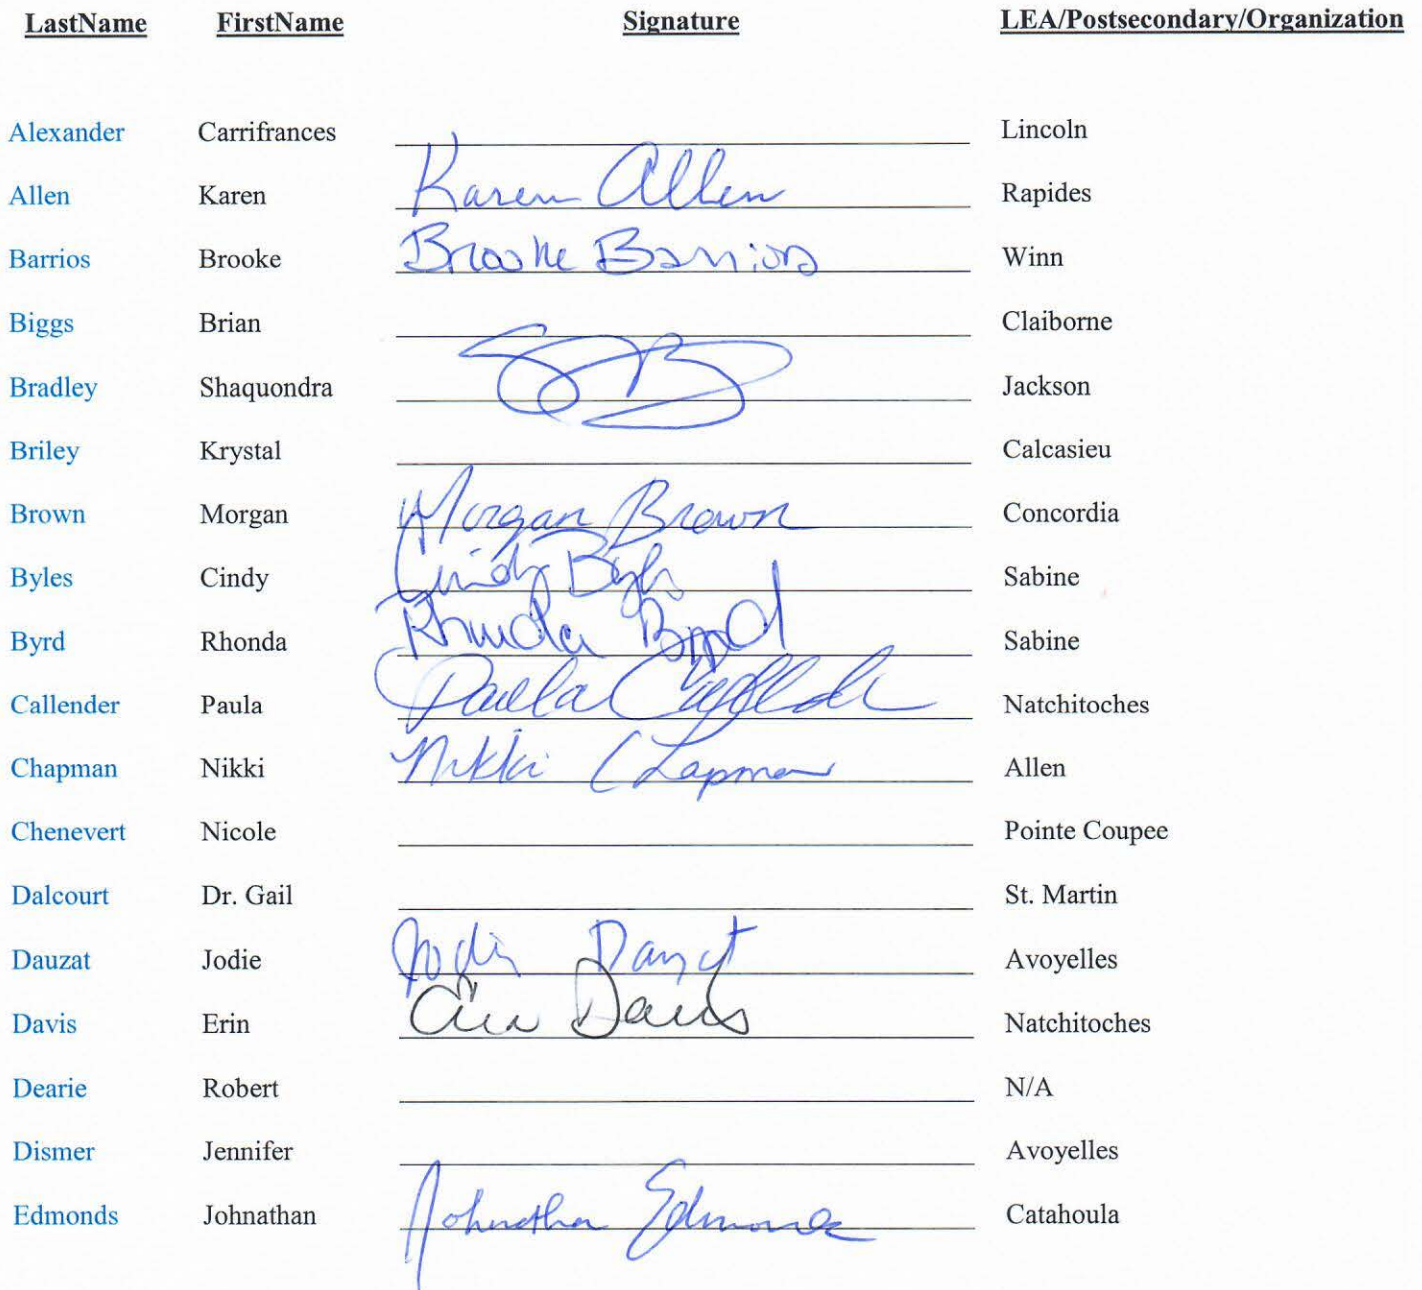 LastName FirstName Signature LEA/Postsecondary/Organization
Alexander Carrifrances Lincoln
Allen Karen Karen Allen Rapides
Barrios Brooke Brooke Barrios Winn
Biggs Brian Claiborne
Bradley Shaquondra SB Jackson
Briley Krystal Calcasieu
Brown Morgan Morgan Brown Concordia
Byles Cindy Cindy Byles Sabine
Byrd Rhonda Rhonda Byrd Sabine
Callender Paula Paula Callender Natchitoches
Chapman Nikki Nikki Chapman Allen
Chenevert Nicole Pointe Coupee
Dalcourt Dr. Gail St. Martin
Dauzat Jodie Jodie Dauzat Avoyelles
Davis Erin Erin Davis Natchitoches
Dearie Robert N/A
Dismer Jennifer Avoyelles
Edmonds Johnathan Johnathan Edmonds Catahoula